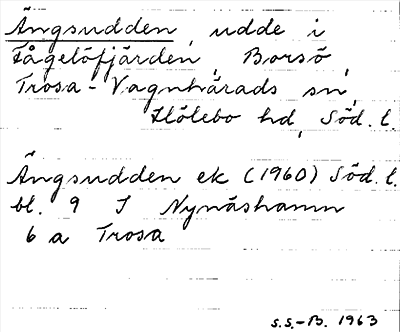 Ängsudden, udde i
Fågelöfjärden, Borsö,
Trosa-Vagnhärads sn,
Hölebo hd, Söd. l.
Ängsudden ek (1960) Söd. l.
bl. 9 I Nynäshamn
6 a Trosa
S.S.-B. 1963